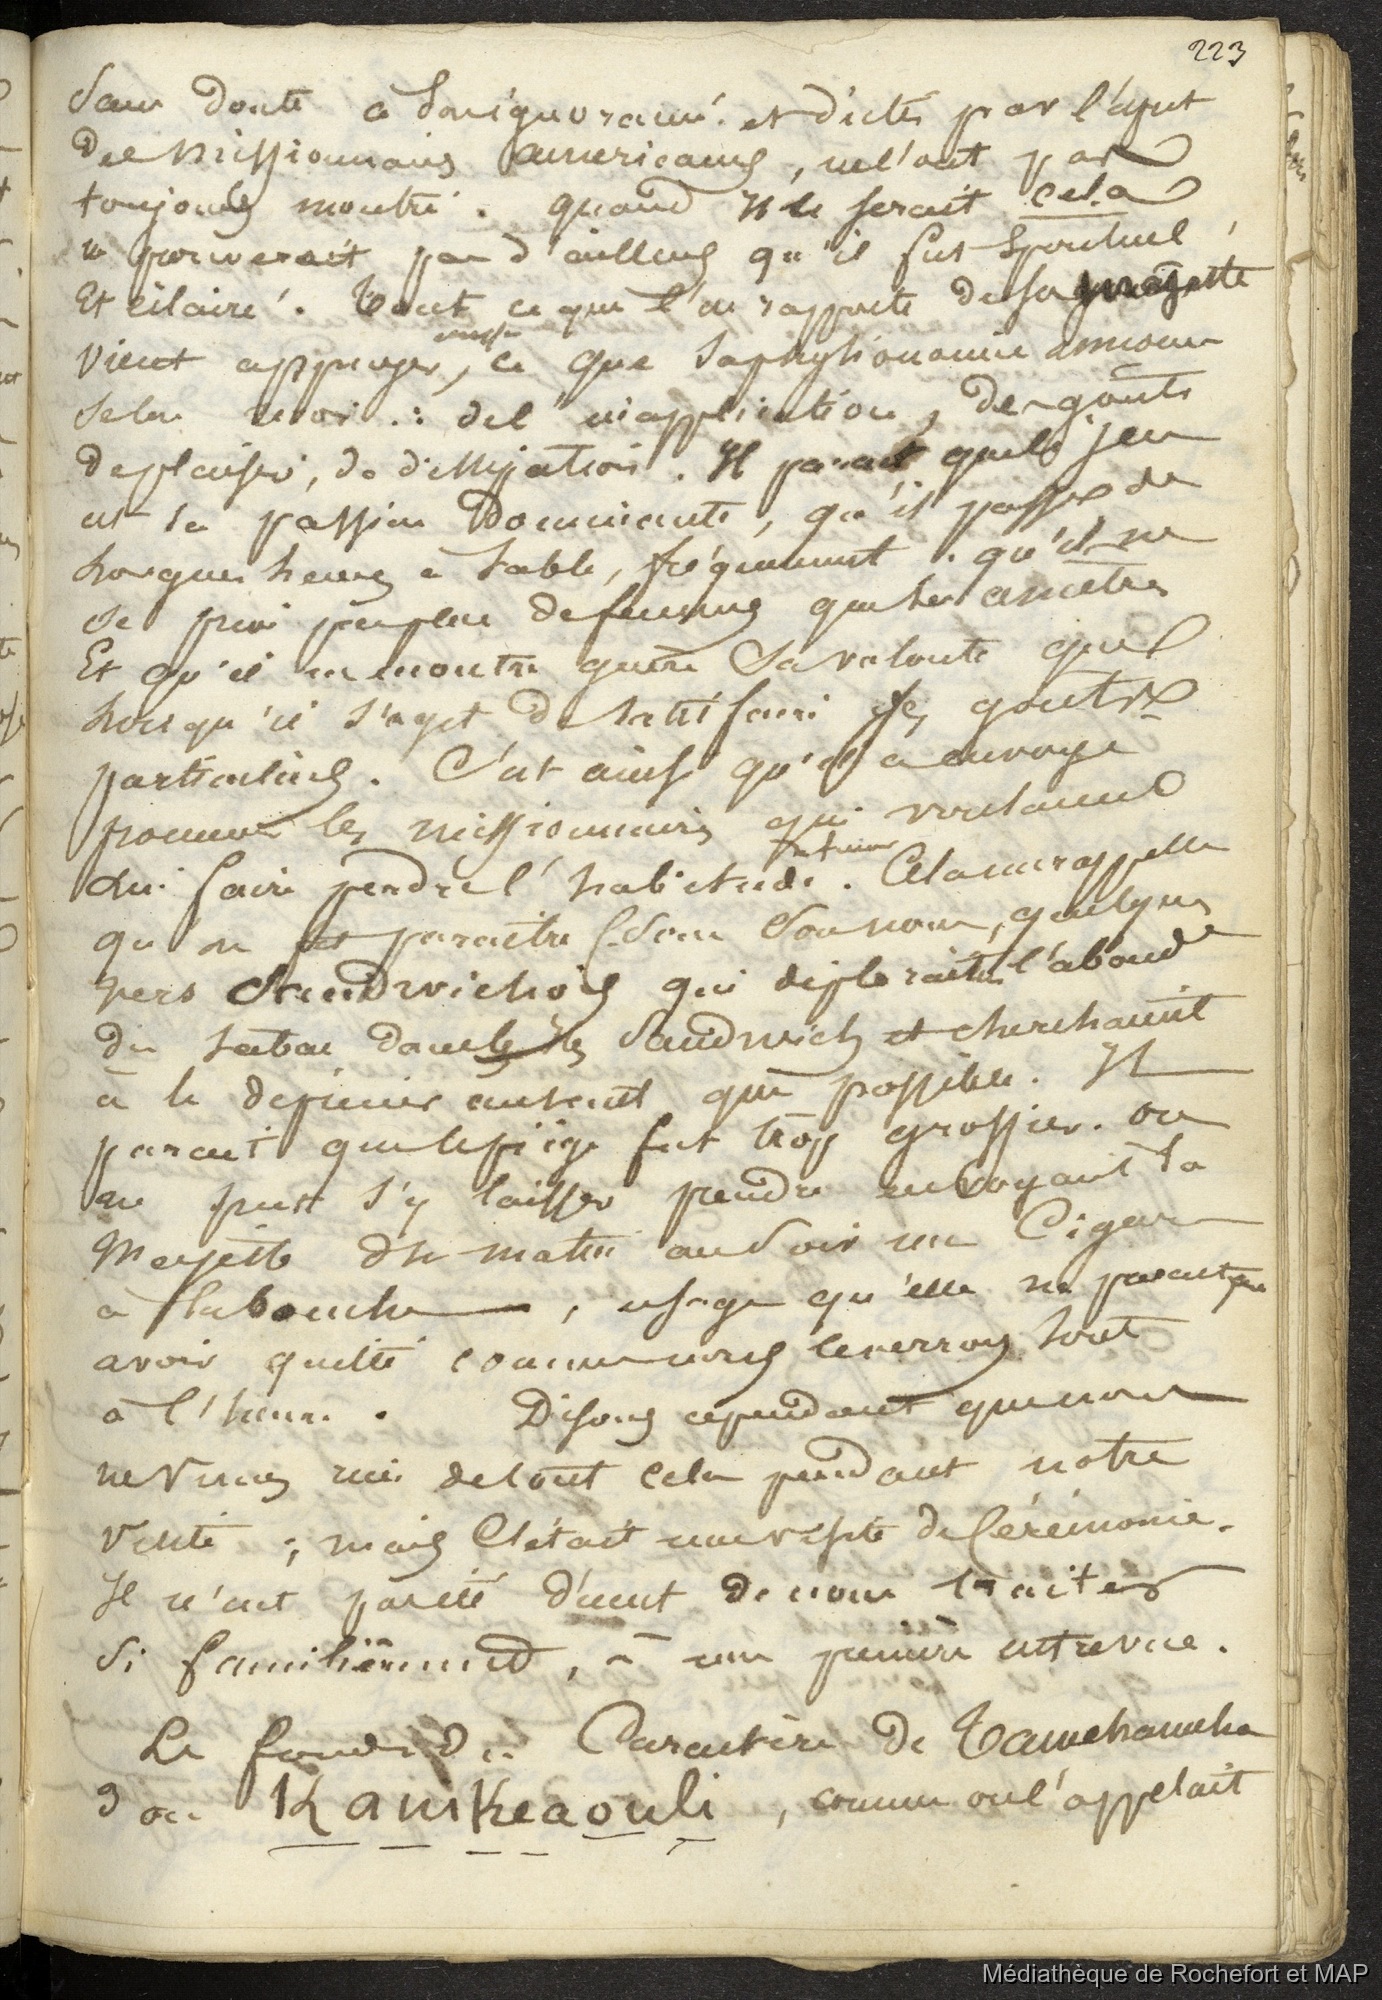 223
Sans doute à son ignorance et dictés par l'esprit
des missionnaires américains, ne l'ont pas
toujours montré. quand Il le serait cela
ne prouverait pas d'ailleurs qu'il fut spirituel,
Et éclairé. Tout ce que l'on rapporte de sa majesté
vient appuyer, ce que sa physionomie annonce
selon moi : de l'inapplication, des goûts
de plaisir, de dissipation. Il parait que le jeu
est sa passion dominante, qu'il passe de
longues heures à table, fréquemment. qu'il ne
se prive pas plus de femmes que ses ancêtres
Et qu'il ne montre guère sa volonté que
lorsqu'il s'agit de satisfaire ses goûts
particuliers. C'est ainsi qu'il a envoyé
promener les missionnaires qui voulaient
lui faire perdre l'habitude de fumer. Cela me rappelle
qu'on fit paraitre sous son nom, quelques
vers Sandwichois qui déploraient l'abord
du tabac dans les Sandwich et cherchaient
à le déprécier autant que possible. Il
parait que le piège fut trop grossier. on
ne put s'y laisser prendre en voyant sa
Majesté du matin au soir un Cigare
à la bouche, usage qu'elle ne parait pas
avoir quitté comme nous le verrons tout
à l'heure. Disons cependant que nous
ne vimes rien de tout cela pendant notre
visite ; mais C'était une visite de Cérémonie.
Il n'eut pas été décent de nous traiter
si familièrement, à une première entrevue.
Le fond du Caractère de Tamehameha
3 ou Kauikeaouli, comme on l'appelait
Médiathèque de Rochefort et MAP